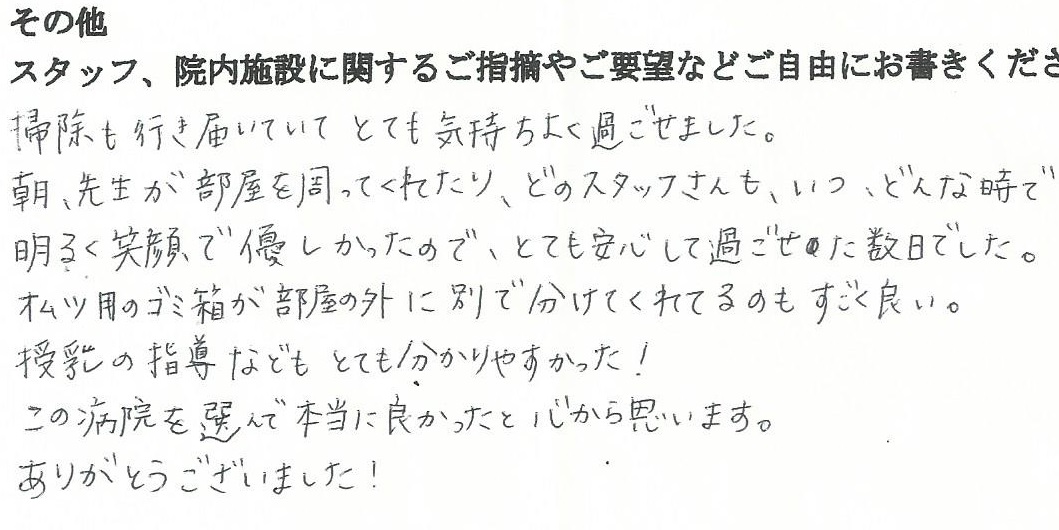 その他
スタッフ、院内施設に関するご指摘やご要望などご自由にお書きくださ
掃除も行き届いていて とても気持ちよく過ごせました。
朝、先生が部屋を周ってくれてたり、どのスタッフさんも、いつ、どんな時で
明るく笑顔で優しかったので、とても安心して過ごせた数日でした。
オムツ用のゴミ箱が部屋の外に別で分けてくれてるのもすごく良い。
授乳の指導などもとても分かりやすかった!
この病院を選んで本当に良かったと心から思います。
ありがとうございました!